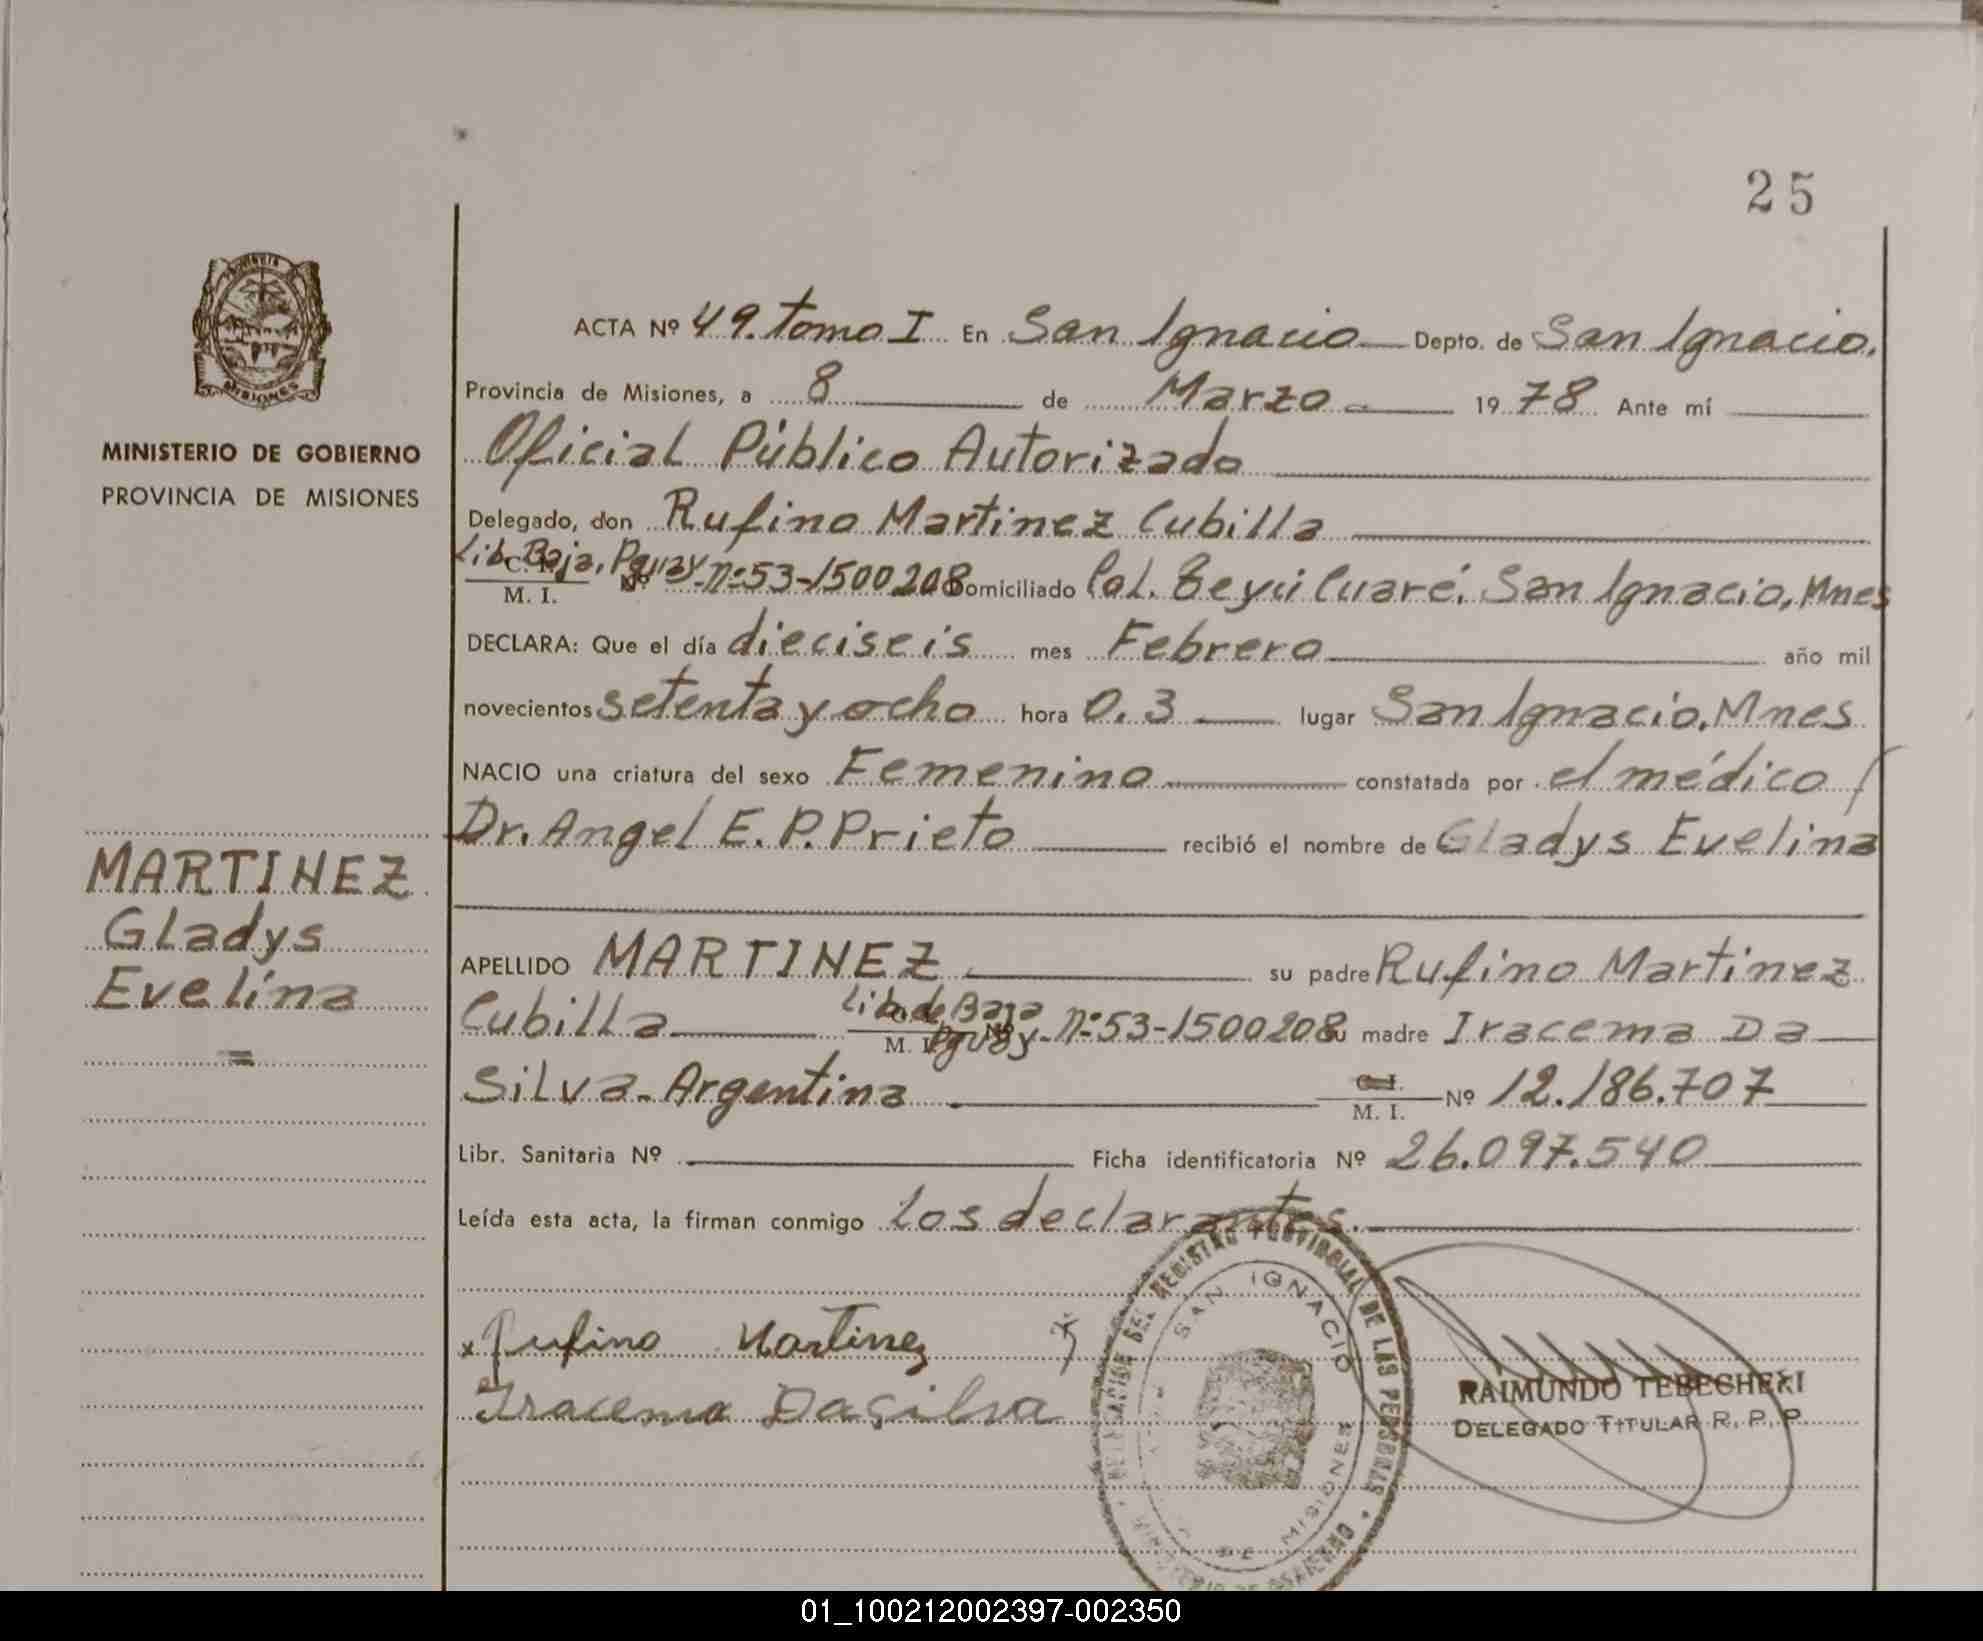 25
PROVINCIA
MISIONES
MINISTERIO DE GOBIERNO
PROVINCIA DE MISIONES
MARTINEZ
Gladys
Evelina
=
ACTA Nº 49. tomo I En San Ignacio Depto. de San Ignacio.
Provincia de Misiones, a 8 de Marzo 1978 Ante mí
Oficial Público Autorizado
Delegado, don Rufino Martinez Cubilla
Lib. Baja, Pguay
M. I. Nº -nº53-1500208 Domiciliado Col. Teyú Cuaré. San Ignacio, Mnes
DECLARA: Que el día dieciseis mes Febrero año mil
novecientos setenta y ocho hora 0.3 lugar San Ignacio, Mnes
NACIO una criatura del sexo Femenino constatada por el médico
Dr. Angel E. P. Prieto recibió el nombre de Gladys Evelina
APELLIDO MARTINEZ su padre Rufino Martinez
Cubilla Lib. de Baja
M. I. Pguay - nº53-1500208 su madre Iracema Da
Silva - Argentina C. I.
M. I. Nº 12.186.707
Libr. Sanitaria Nº Ficha identificatoria Nº 26.097.540
Leída esta acta, la firman conmigo los declarantes.
x Rufino Martinez
Iracema Dasilva
REGISTRO PROVINCIAL DE LAS PERSONAS
SAN IGNACIO
MISIONES
RAIMUNDO TEBECHERI
DELEGADO TITULAR R. P. P.
01_100212002397-002350